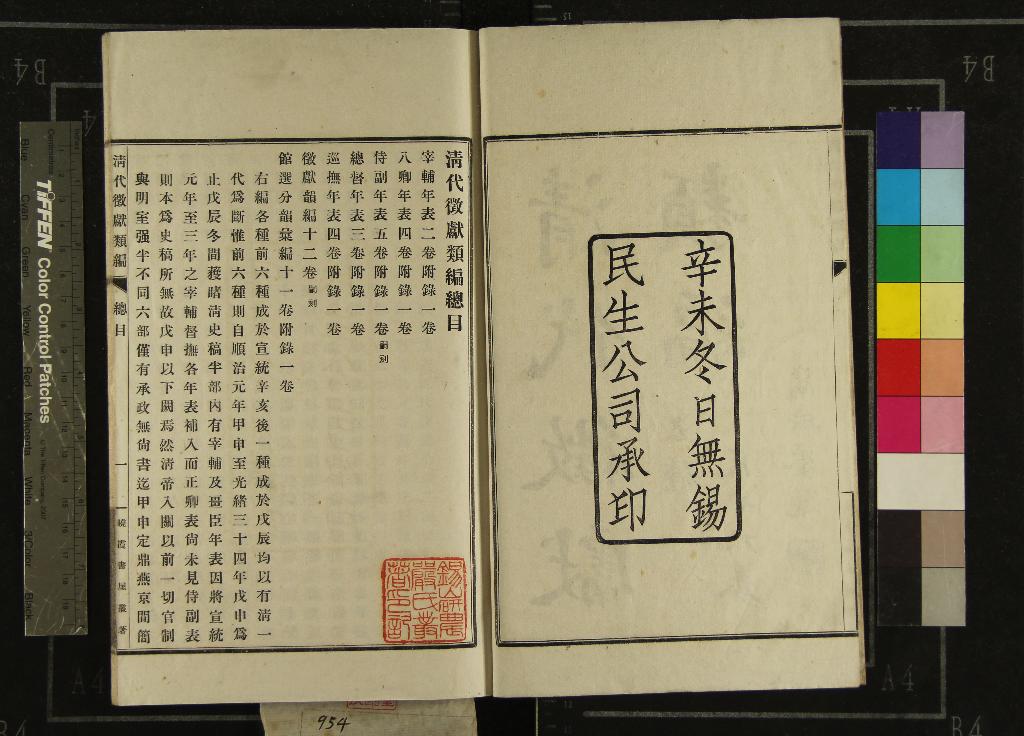 辛未冬日無錫
民生公司承印
清代徵獻類編總目
宰輔年表二卷附錄一卷
八卿年表四卷附錄一卷
侍副年表五卷附錄一卷嗣刻
總督年表三卷附錄一卷
巡撫年表四卷附錄一卷
徵獻韻編十二卷嗣刻
館選分韻彙編十一卷附錄一卷
右編各種前六種成於宣統辛亥後一種成於戊辰均以有清一
代爲斷惟前六種則自順治元年甲申至光緒三十四年戊申爲
止戊辰冬間獲睹清史稿半部內有宰輔及畺臣年表因將宣統
元年至三年之宰輔督撫各年表補入而正卿表尙未見侍副表
則本爲史稿所無故戊申以下闕焉然清帝入關以前一切官制
與明室强半不同六部僅有承政無尙書迄甲申定鼎燕京間簡
清代徵獻類編
總目
一
曉霞書屋叢著
錫山嚴氏叢
954
TIFFEN Color Control Patches
Blue
Cyan
Green
Yellow
Red
Magenta
White
3/Color
Black
B4
B4
A4
A4
B4